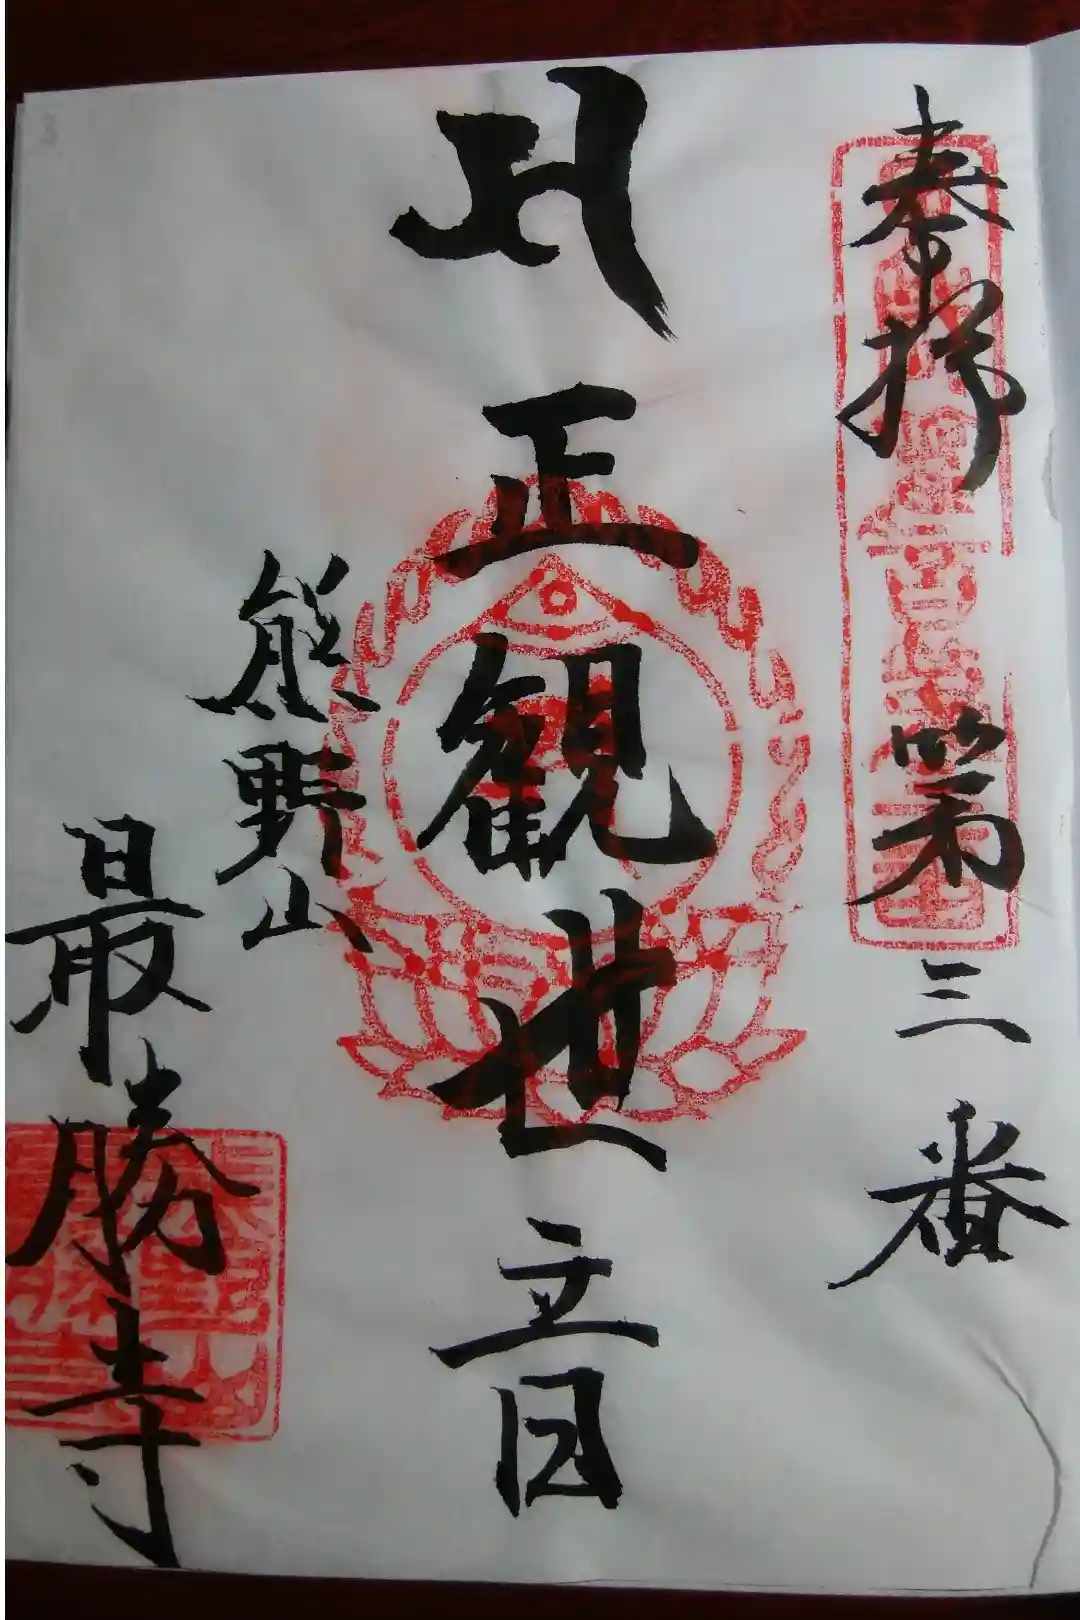 奉拝 第三番
正観世音
熊野山
最勝寺